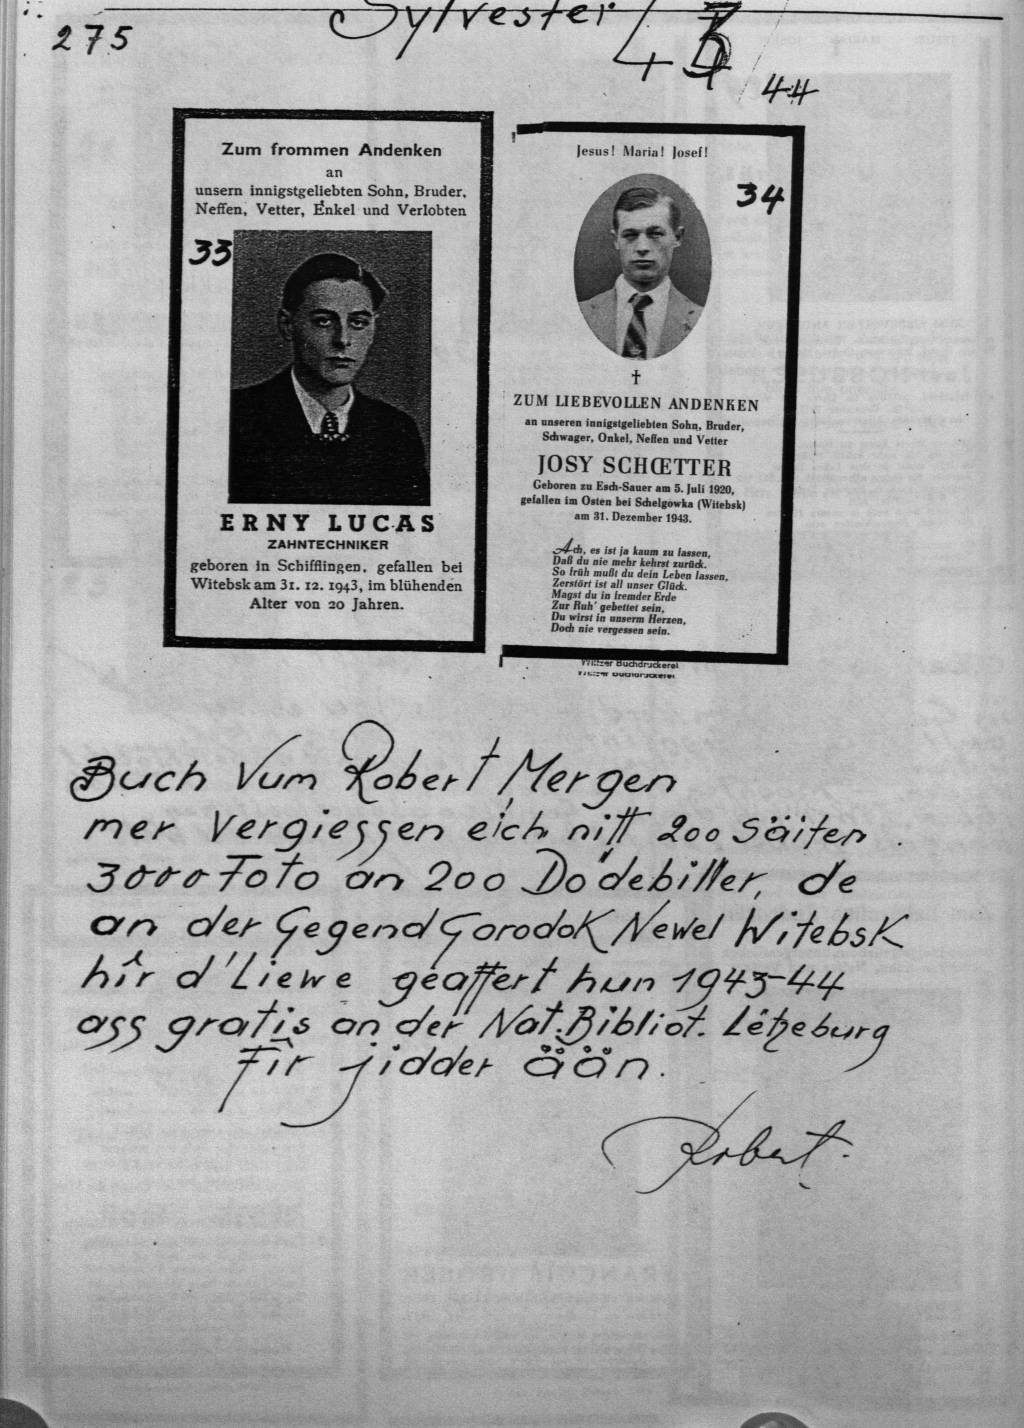 275
Sylvester 43
44
Zum frommen Andenken
an
unsern innigstgeliebten Sohn, Bruder,
Neffen, Vetter, Enkel und Verlobten
33
ERNY LUCAS
ZAHNTECHNIKER
geboren in Schifflingen, gefallen bei
Witebsk am 31. 12. 1943, im blühenden
Alter von 20 Jahren.
Jesus! Maria! Josef!
34
†
ZUM LIEBEVOLLEN ANDENKEN
an unseren innigstgeliebten Sohn, Bruder,
Schwager, Onkel, Neffen und Vetter
JOSY SCHŒTTER
Geboren zu Esch-Sauer am 5. Juli 1920,
gefallen im Osten bei Schelgowka (Witebsk)
am 31. Dezember 1943.
Ach, es ist ja kaum zu fassen,
Daß du nie mehr kehrst zurück.
So früh mußt du dein Leben lassen,
Zerstört ist all unser Glück.
Magst du in fremder Erde
Zur Ruh' gebettet sein,
Du wirst in unserm Herzen,
Doch nie vergessen sein.
Wiltzer Buchdruckerei
Wiltzer Buchdruckerei
Buch vum Robert Mergen
mer vergiessen eich nitt 200 Säiten.
3000 Foto an 200 Do'debiller, de
an der Gegend Gorodok Newel Witebsk
hîr d'Liewe geaffert hun 1943-44
ass gratis an der Nat. Bibliot. Lëtzeburg
Fîr jidder ään.
Robert.